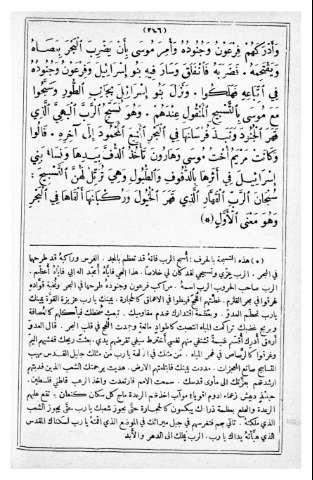 (٢٨٦)
وَأَدْرَكَهُمْ فِرْعَوْنُ وَجُنُودُهُ وَأُمِرَ مُوسَى بِأَنْ يَضْرِبَ الْبَحْرَ بِعَصَاهُ
وَيَقْتَحِمَهُ ۰ فَضَرَبَهُ فَانْفَلَقَ وَسَارَ فِيهِ بَنُو إِسْرَائِيلَ وَفِرْعَوْنُ وَجُنُودُهُ
فِي أَتْبَاعِهِ فَهَلَكُوا ۰ وَنَزَلَ بَنُو إِسْرَائِيلَ بِجَانِبِ الطُّورِ وَسَبَّحُوا
مَعَ مُوسَى بِالتَّسْبِيحِ الْمَنْقُولِ عِنْدَهُمْ ۰ وَهُوَ نُسَبِّحُ الرَّبَّ الْبَهِيَّ الَّذِي
قَهَرَ الْجُنُودَ وَنَبَذَ فُرْسَانَهَا فِي الْبَحْرِ الْمَنِيعَ الْمَحْمُودَ إِلَى آخِرِهِ ۰ قَالُوا
وَكَانَتْ مَرْيَمُ أُخْتُ مُوسَى وَهَارُونَ تَأْخُذُ الدُّفَّ بِيَدِهَا وَنِسَاءُ بَنِي
إِسْرَائِيلَ فِي أَثَرِهَا بِالدُّفُوفِ وَالطُّبُولِ وَهِيَ تُرَتِّلُ لَهُنَّ التَّسْبِيحَ :
سُبْحَانَ الرَّبِّ الْقَهَّارِ الَّذِي قَهَرَ الْخُيُولَ وَرُكْبَانَهَا أَلْقَاهَا فِي الْبَحْرِ
وَهُوَ مَعْنَى الْأَوَّلِ (*)
(*) هذه التسبيحة بالحرف : أُسبح الرب فانه قد تعظم بالمجد . الفرس وراكبه قد طرحهما
في البحر . الرب عزّي وتسبيحي لقد كان لي خلاصًا . هذا إلهي فاياه أُمجد إله ابي فاياه أُعظم .
الرب صاحب الحروب الرب اسمه . مراكب فرعون وجنوده طرحها في البحر ونخبة قواده
غرقوا في بحر القلزم . غطتهم اللجج فهبطوا في الاعماق كالحجارة . يمينك يا رب عزيزة القوة يمينك
يا رب تحطم العدو . وبعظمة اقتدارك تهدم مقاوميك . تبعث سخطك فيأكلهم كالعصافة
وبريح غضبك تراكمت المياه انتصبت كالطواد مائعة وجمدت اللجج في قلب البحر . قال العدو
أُرهق أُدرك أَقسم غنيمة تشتفي منهم نفسي أخترط سيفي تقرضهم يدي . بعثت ريحك فغشيهم اليم
وغرقوا كالرصاص في غمر المياه . من مثلك في الآلهة يا رب من مثلك جليل القدس مهيب
التسابيح صانع المعجزات . مددت يمينك فابتلعتهم الارض . هديت برحمتك الشعب الذين فديتهم
ارشدتهم بعزتك الى مأوى قدسك . سمعت الامم فارتعدت واخذ الرعب قاطني فلسطين .
حينئذ دهش زعماء ادوم اقوياء موآب اخذتهم الرعدة ماج كل سكان كنعان . تقع عليهم
الرعدة والهلع بعظمة ذراعك يسكنون كالحجارة حتى يجوز شعبك يا رب حتى يجوز الشعب
الذي ملكته . تأتي بهم فتغرسهم في جبل ميراثك في الموضع الذي اقمته يا رب لسكناك المقدس
الذي هيأته يداك يا رب . الرب يملك الى الدهر والأبد